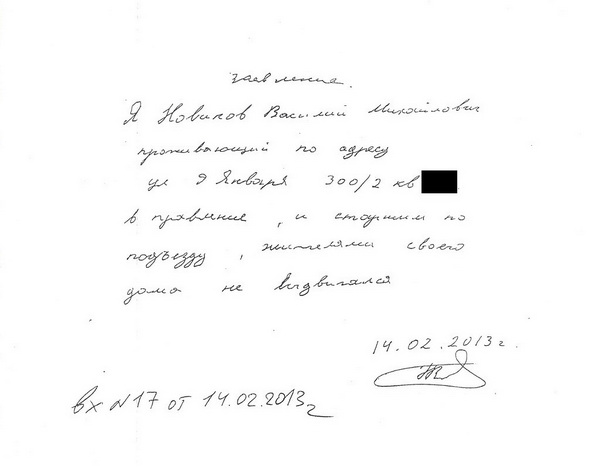 заявление.
Я Новиков Василий Михайлович
проживающий по адресу
ул 9 Января 300/2 кв
в правление, и старшим по
подъезду, жителями своего
дома не выдвигался
14.02.2013 г.
вх N17 от 14.02.2013 г